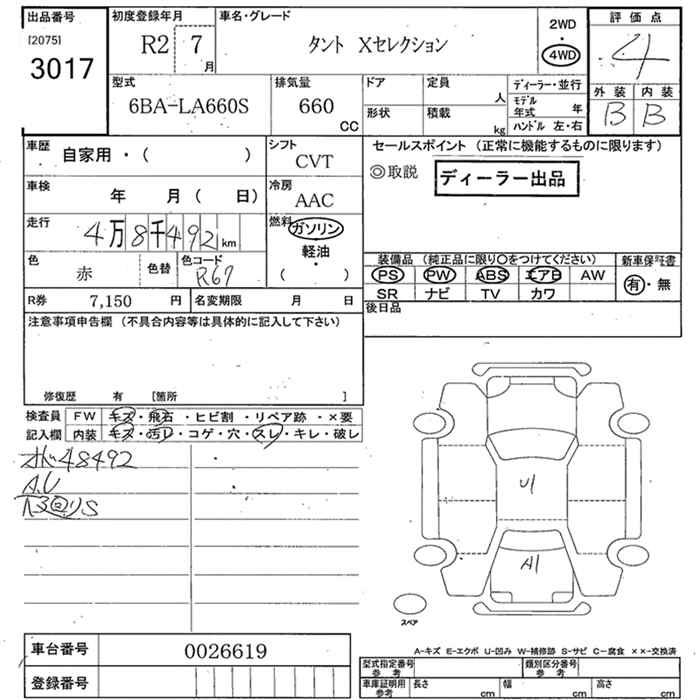 出品番号
[2075]
3017
初度登録年月
R2 7 月
車名・グレード
タント Xセレクション
2WD
・
4WD
評価点
4
外装 内装
B B
型式
6BA-LA660S
排気量
660
CC
ドア
形状
定員
人
積載
kg
ディーラー・並行
モデル
年式 年
ハンドル 左・右
車歴
自家用・( )
シフト
CVT
車検
年 月( 日)
冷房
AAC
走行
4万8千492km
燃料
ガソリン
軽油
・
( )
色
赤
色替
色コード
R67
R券
7,150 円
名変期限 月 日
セールスポイント (正常に機能するものに限ります)
◎取説
ディーラー出品
装備品 (純正品に限り○をつけてください)
PS PW ABS エアB AW
SR ナビ TV カワ
新車保証書
有・無
後日品
注意事項申告欄 (不具合内容等は具体的に記入して下さい)
修復歴 有 [箇所 ]
検査員
記入欄
FW キズ・飛石・ヒビ割・リペア跡・×要
内装 キズ・汚レ・コゲ・穴・スレ・キレ・破レ
48492
A.U
U1
A1
スペア
A-キズ E-エクボ U-凹み W-補修跡 S-サビ C-腐食 ××-交換済
車台番号
0026619
登録番号
型式指定番号
参考
類別区分番号
参考
車庫証明用
参考
長さ cm
幅 cm
高さ cm